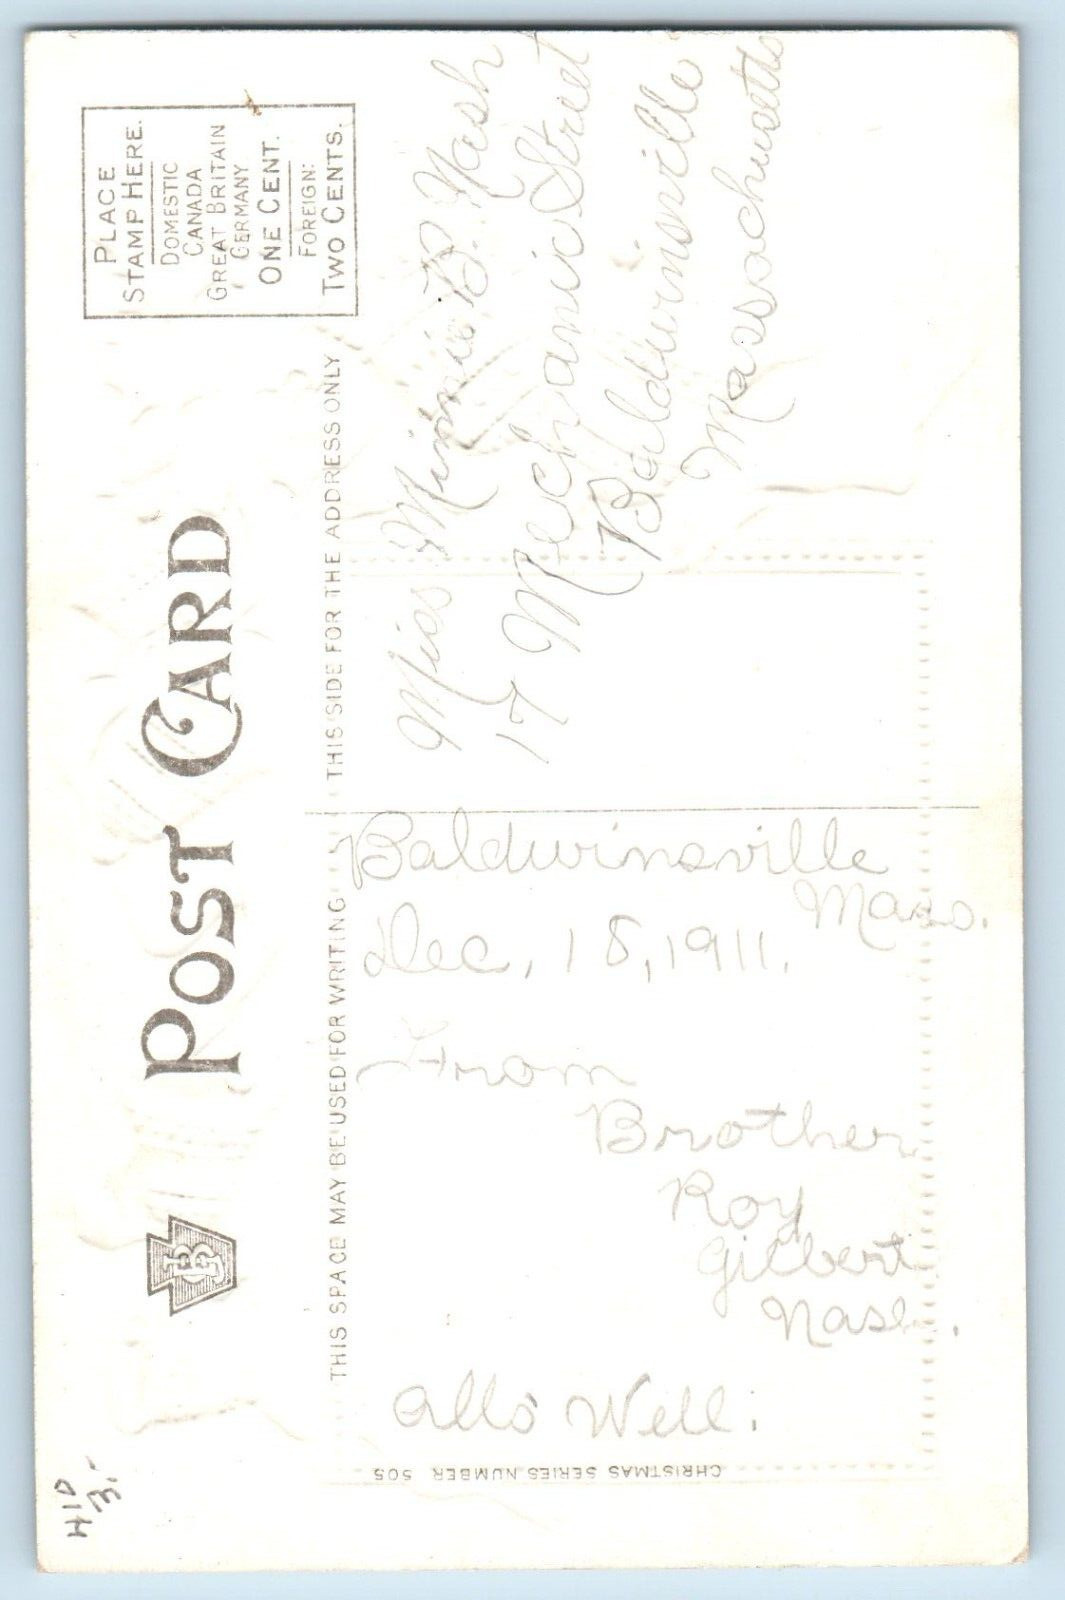 POST CARD
B
PLACE
STAMP HERE.
DOMESTIC
CANADA
GREAT BRITAIN
GERMANY
ONE CENT.
FOREIGN:
TWO CENTS.
THIS SPACE MAY BE USED FOR WRITING
THIS SIDE FOR THE ADDRESS ONLY
Baldwinsville
Mass.
Dec, 18, 1911.
From
Brother
Roy
Gilbert
Nash.
Alls Well.
Miss Minnie B. Nash
17 Mechanic Street
Baldwinsville
Massachusetts
CHRISTMAS SERIES NUMBER 505
H10
3.-